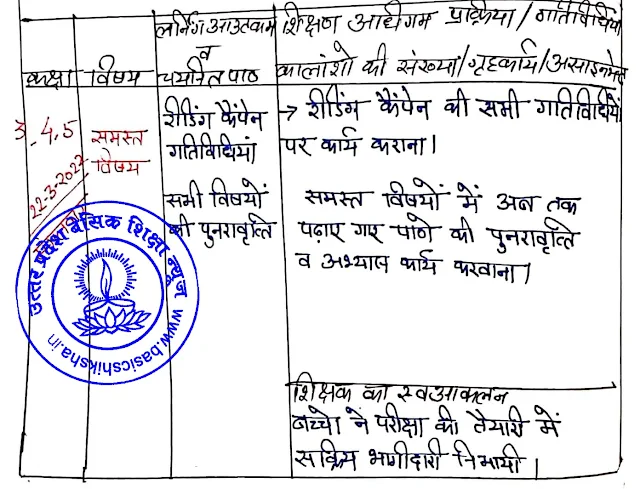 लर्निंग आउटकम
व
चयनित पाठ
शिक्षण अधिगम प्रक्रिया/गतिविधियां
कालांशो की संख्या/गृहकार्य/असाइनमेंट
कक्षा
विषय
3,4,5
22-3-2022
समस्त
विषय
रीडिंग कैंपेन
गतिविधियां
सभी विषयों
की पुनरावृत्ति
→ रीडिंग कैंपेन की सभी गतिविधियों
पर कार्य कराना।
समस्त विषयों में अब तक
पढ़ाए गए पाठो की पुनरावृत्ति
व अभ्यास कार्य करवाना।
शिक्षक का स्वआकलन
बच्चो ने परीक्षा की तैयारी में
सक्रिय भागीदारी निभायी।
उत्तर प्रदेश बेसिक शिक्षा न्यूज
www.basicshiksha.in